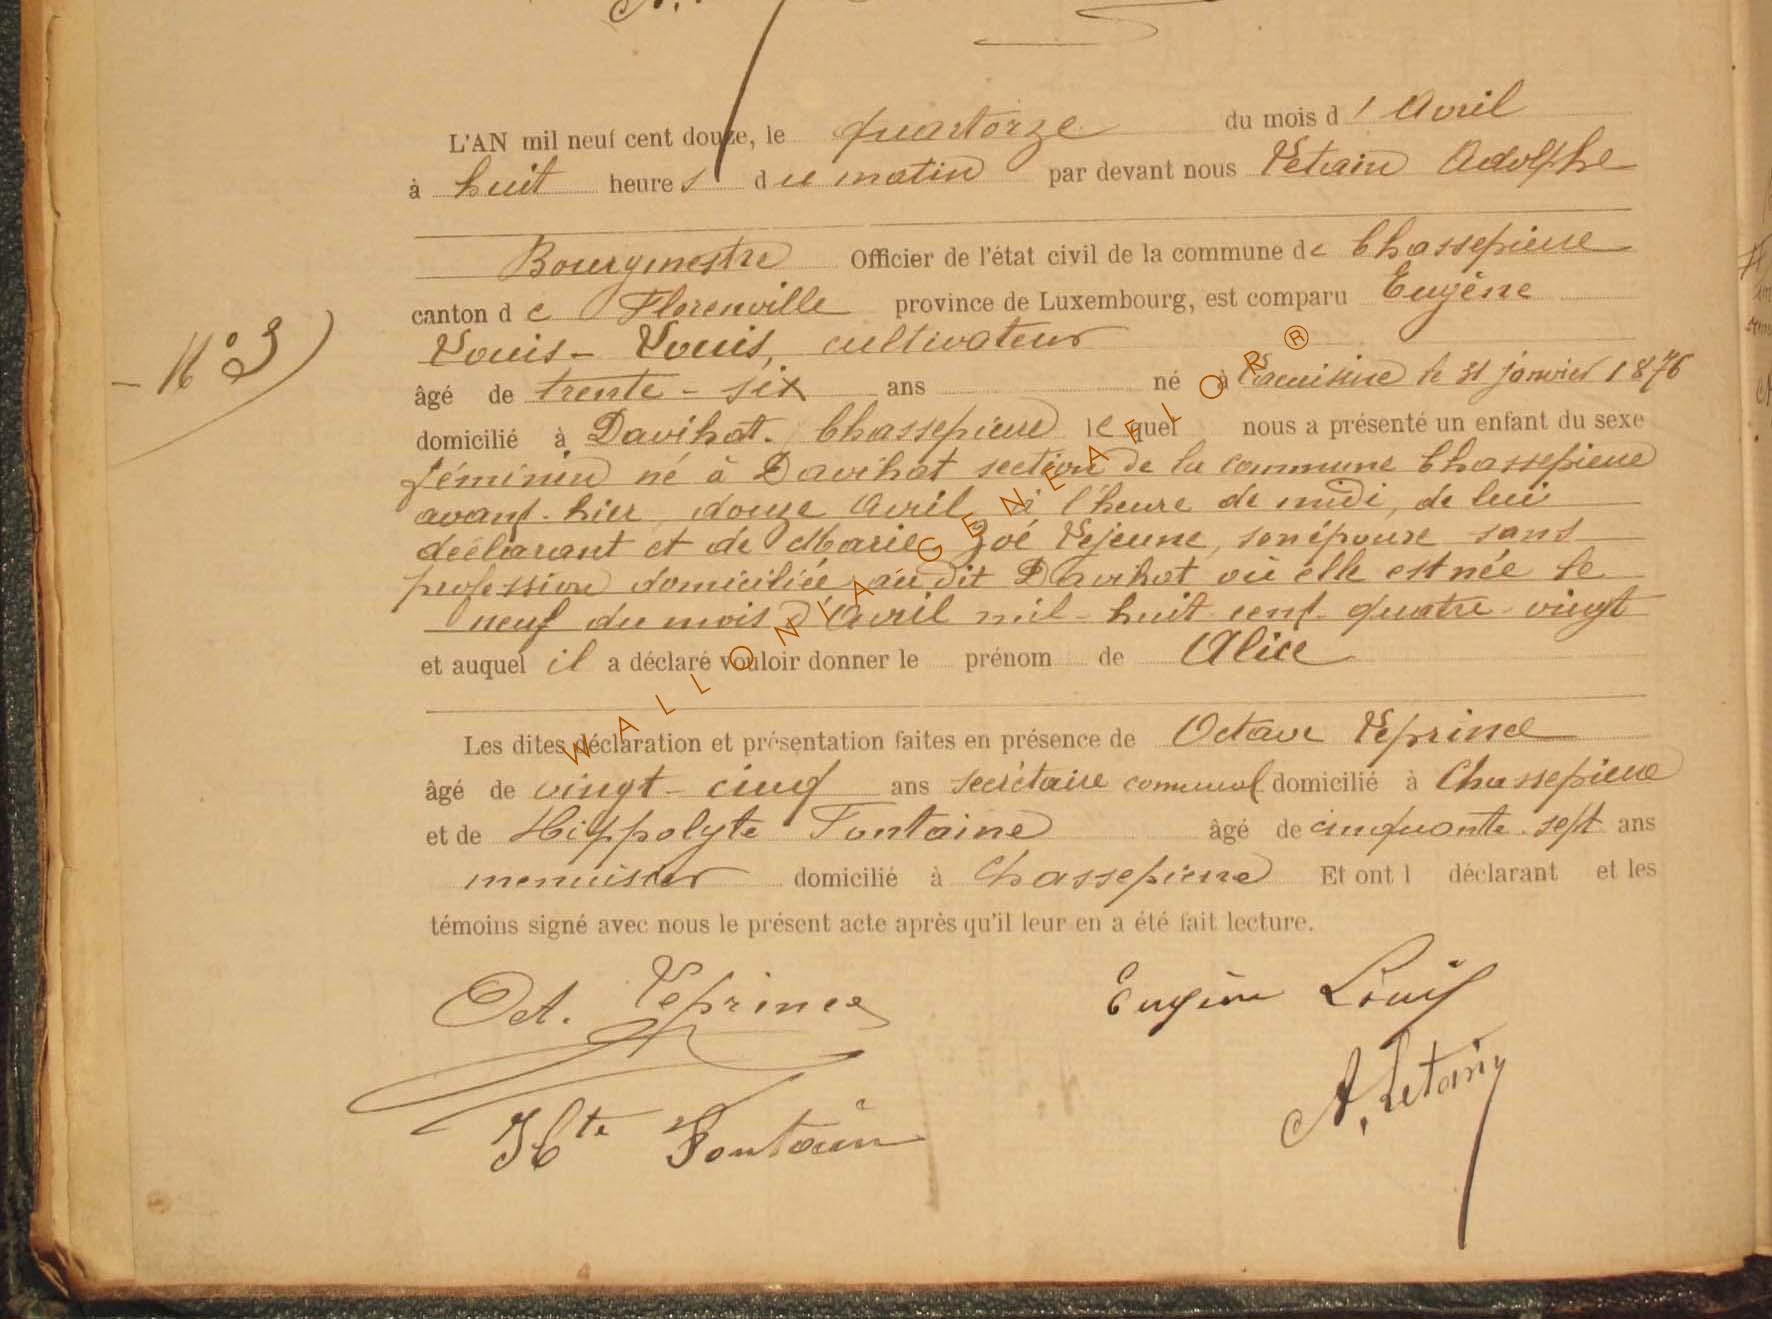 L'AN mil neuf cent douze, le quartorze du mois d'Avril
à huit heures du matin par devant nous Letain Adolphe
Bourgmestre Officier de l'état civil de la commune de Chassepierre
canton de Florenville province de Luxembourg, est comparu Eugène
N° 3
Louis - Louis, cultivateur
âgé de trente - six ans né à Lacuisine le 31 janvier 1876
domicilié à Davihat. Chassepierre lequel nous a présenté un enfant du sexe
féminin né à Davihat section de la commune Chassepierre
avant-hier douze Avril à l'heure de midi, de lui
déclarant et de Marie Zoé Lejeune, son épouse sans
profession domiciliée au dit Davihat où elle est née le
neuf du mois d'Avril mil-huit cent quatre-vingt
et auquel il a déclaré vouloir donner le prénom de Alice
Les dites déclaration et présentation faites en présence de Octave Leprince
âgé de vingt-cinq ans secrétaire communal domicilié à Chassepierre
et de Hippolyte Fontaine âgé de cinquante-sept ans
menuisier domicilié à Chassepierre Et ont l déclarant et les
témoins signé avec nous le présent acte après qu'il leur en a été fait lecture.
Oct. Leprince Eugène Louis
A. Letain
Hte Fontain
WALLONIA GENEALOR ®